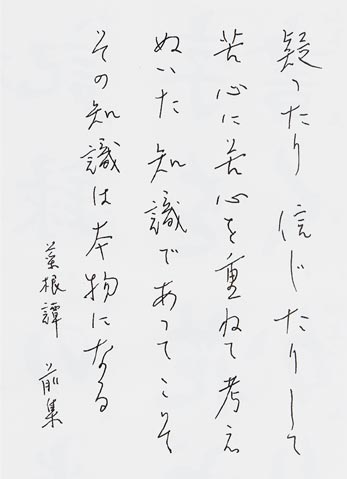 疑ったり 信じたりして
苦心に苦心を重ねて考え
ぬいた 知識であってこそ
その知識は本物になる
菜根譚 前集